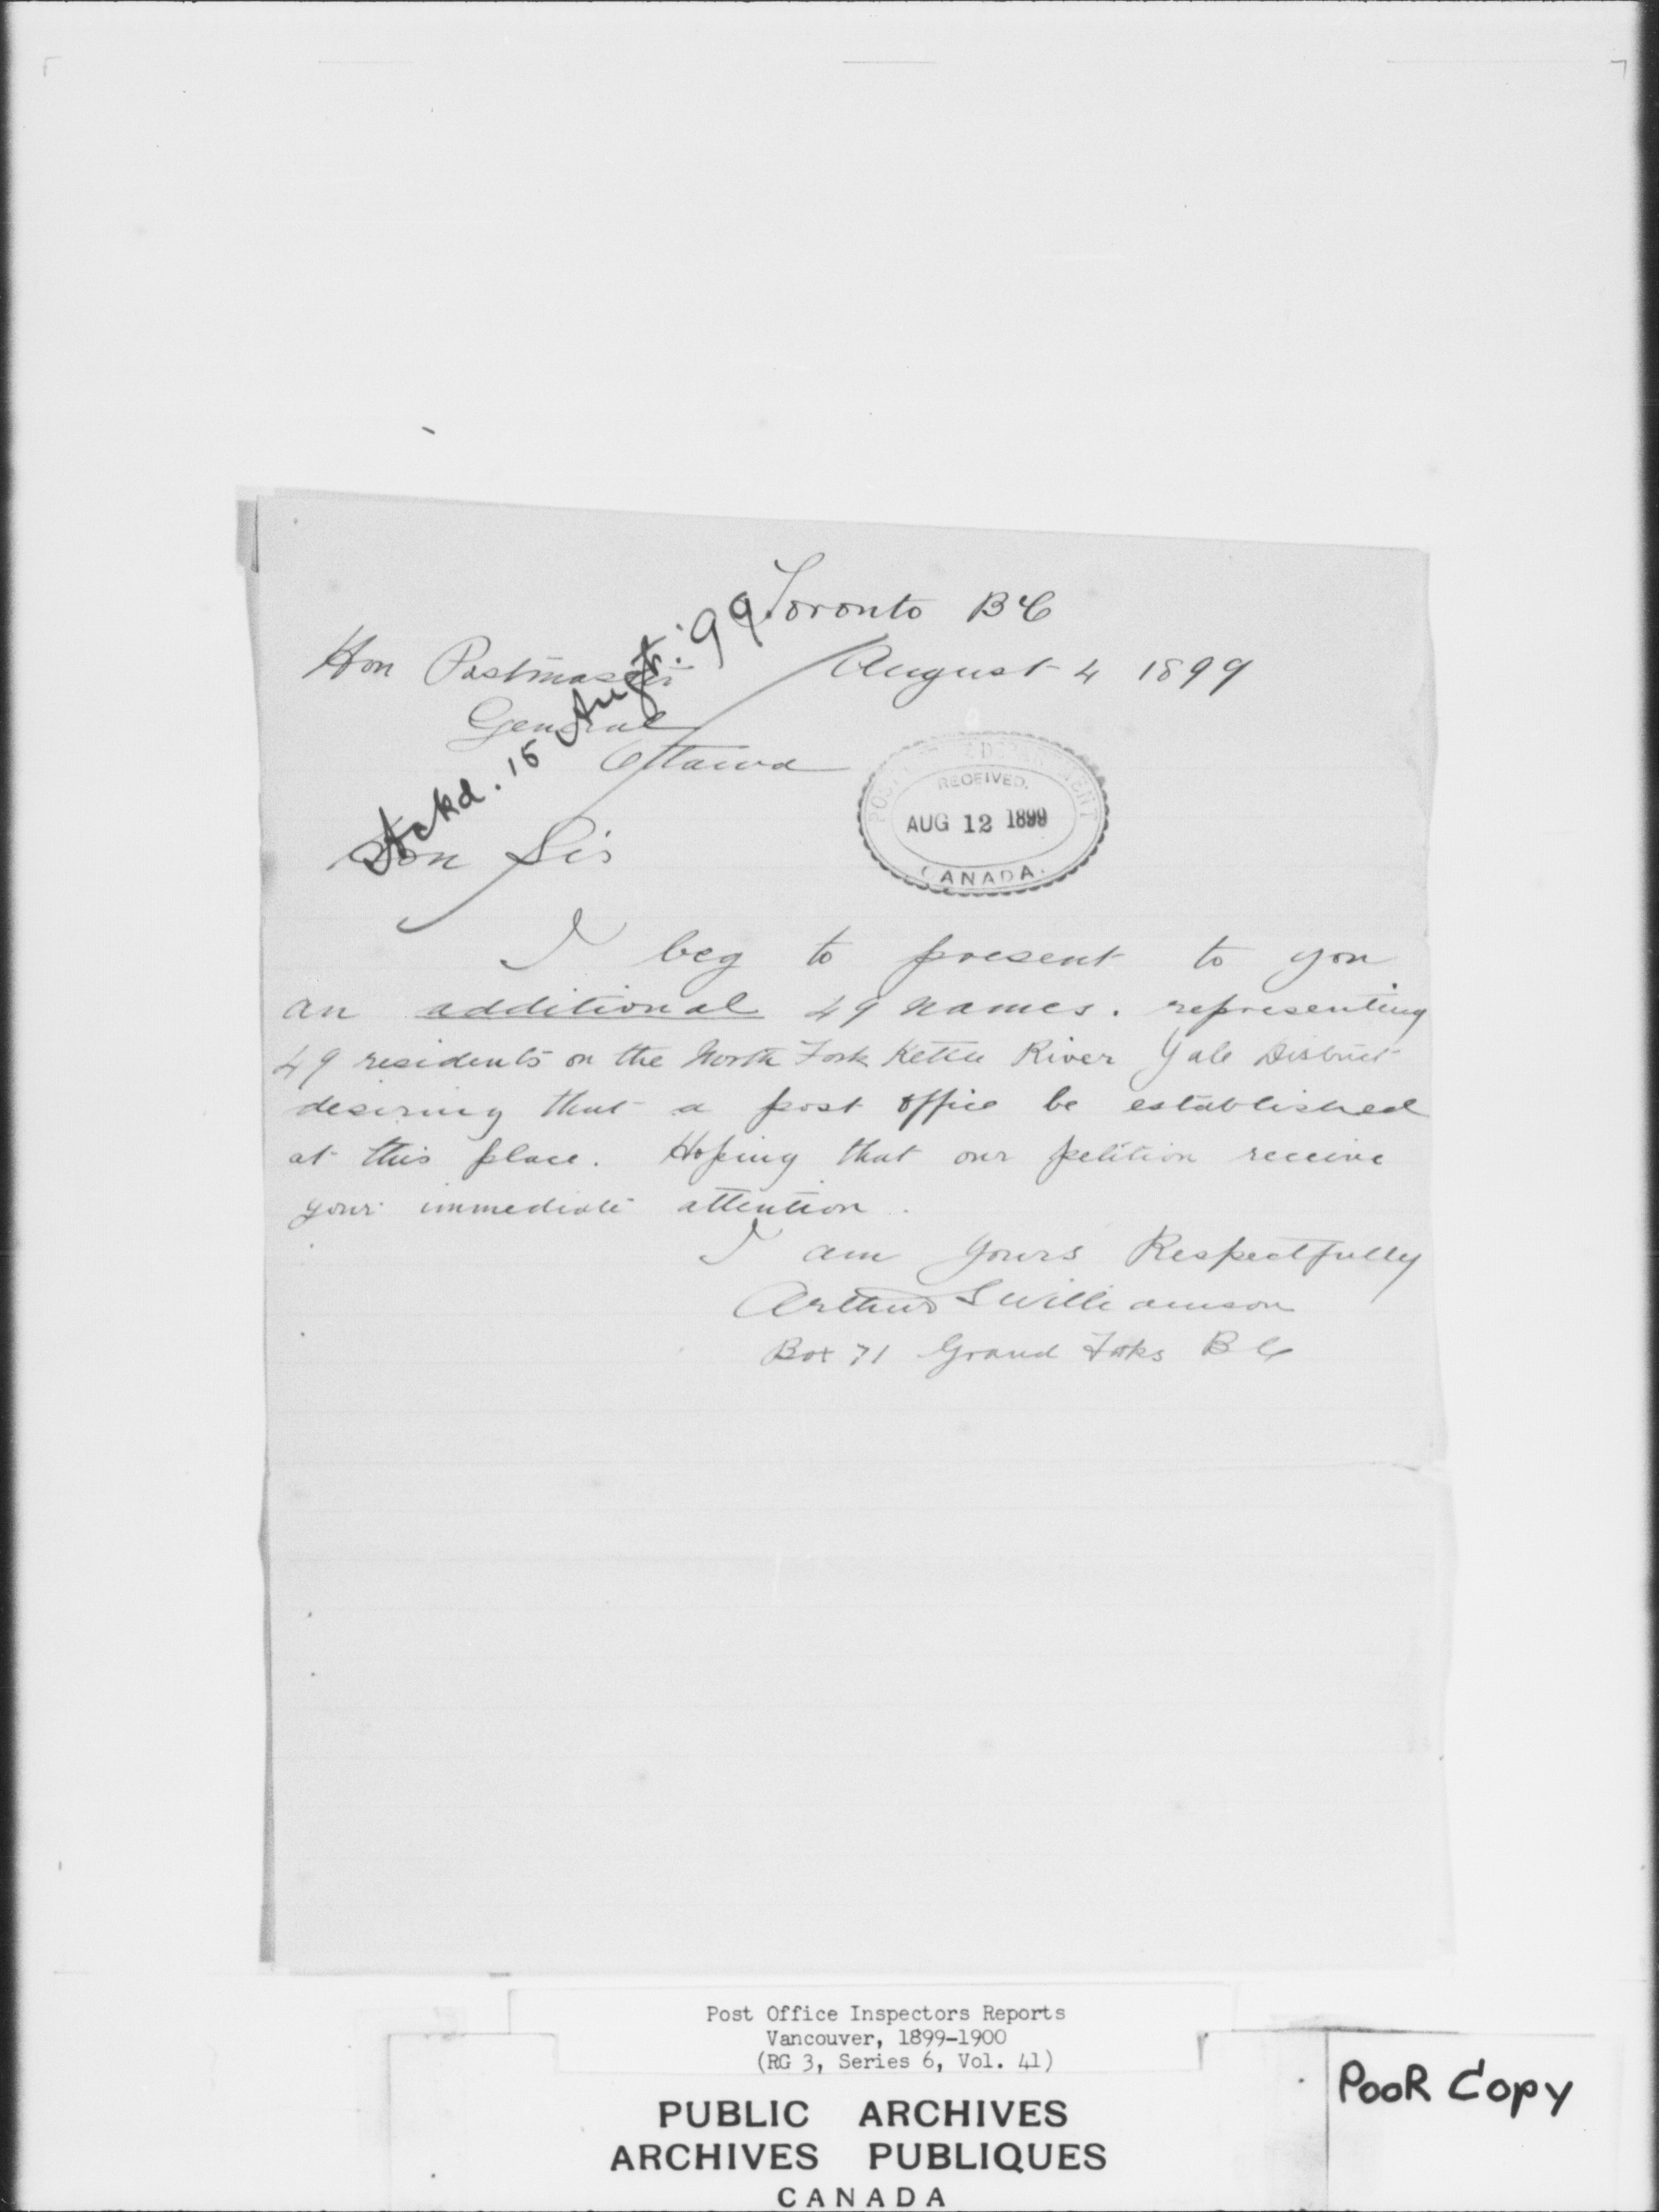 Toronto BC
Hon Postmaster August 4 1899
General
Ottawa
Ackd. 15 Augt. '99
POST OFFICE DEPARTMENT
RECEIVED.
AUG 12 1899
CANADA.
Hon Sir
I beg to present to you
an additional 49 names. representing
49 residents on the North Fork Kettle River Yale District
desiring that a post office be established
at this place. Hoping that our petition receive
your immediate attention.
I am Yours Respectfully
Arthur S Williamson
Box 71 Grand Foks BC
Post Office Inspectors Reports
Vancouver, 1899-1900
(RG 3, Series 6, Vol. 41)
POOR COPY
PUBLIC ARCHIVES
ARCHIVES PUBLIQUES
CANADA